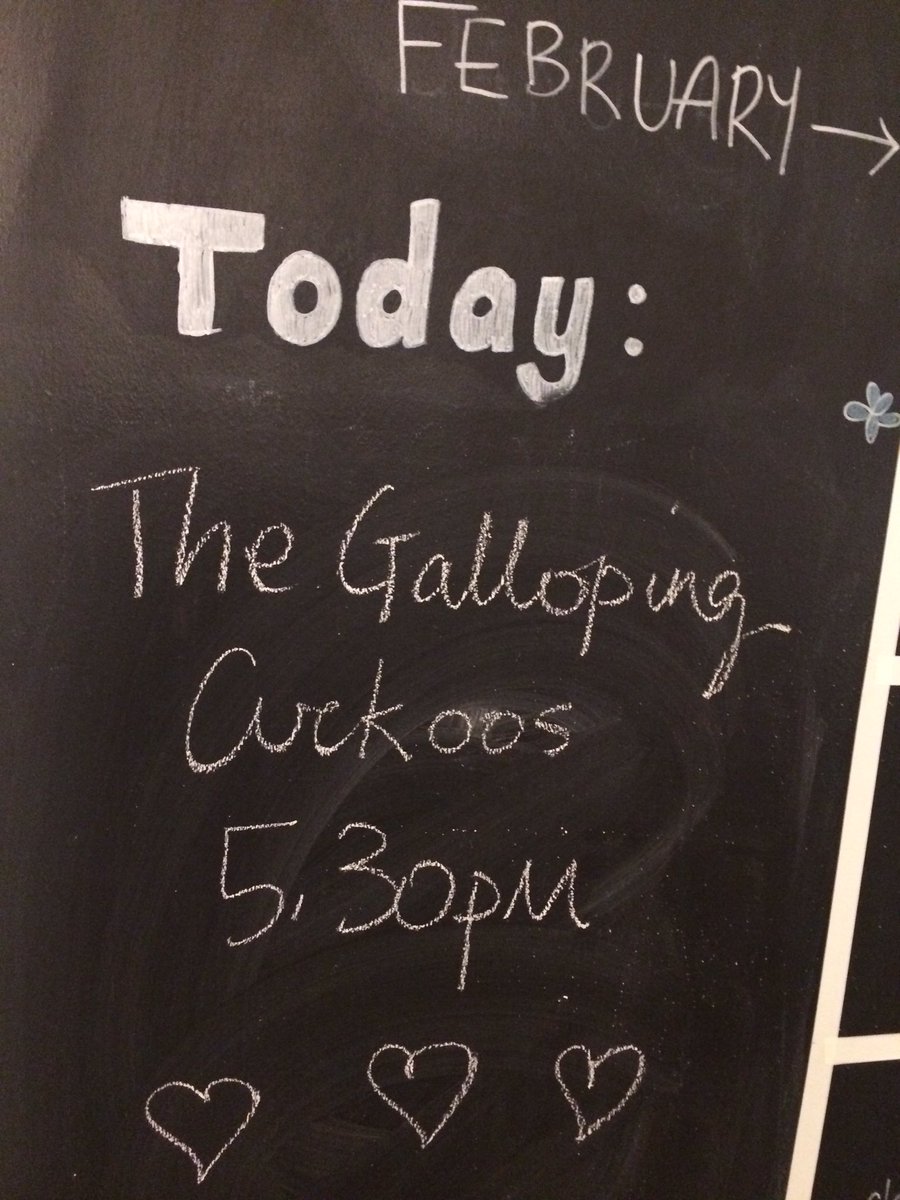 FEBRUARY →
Today:
The Galloping
Cuckoos
5.30pm